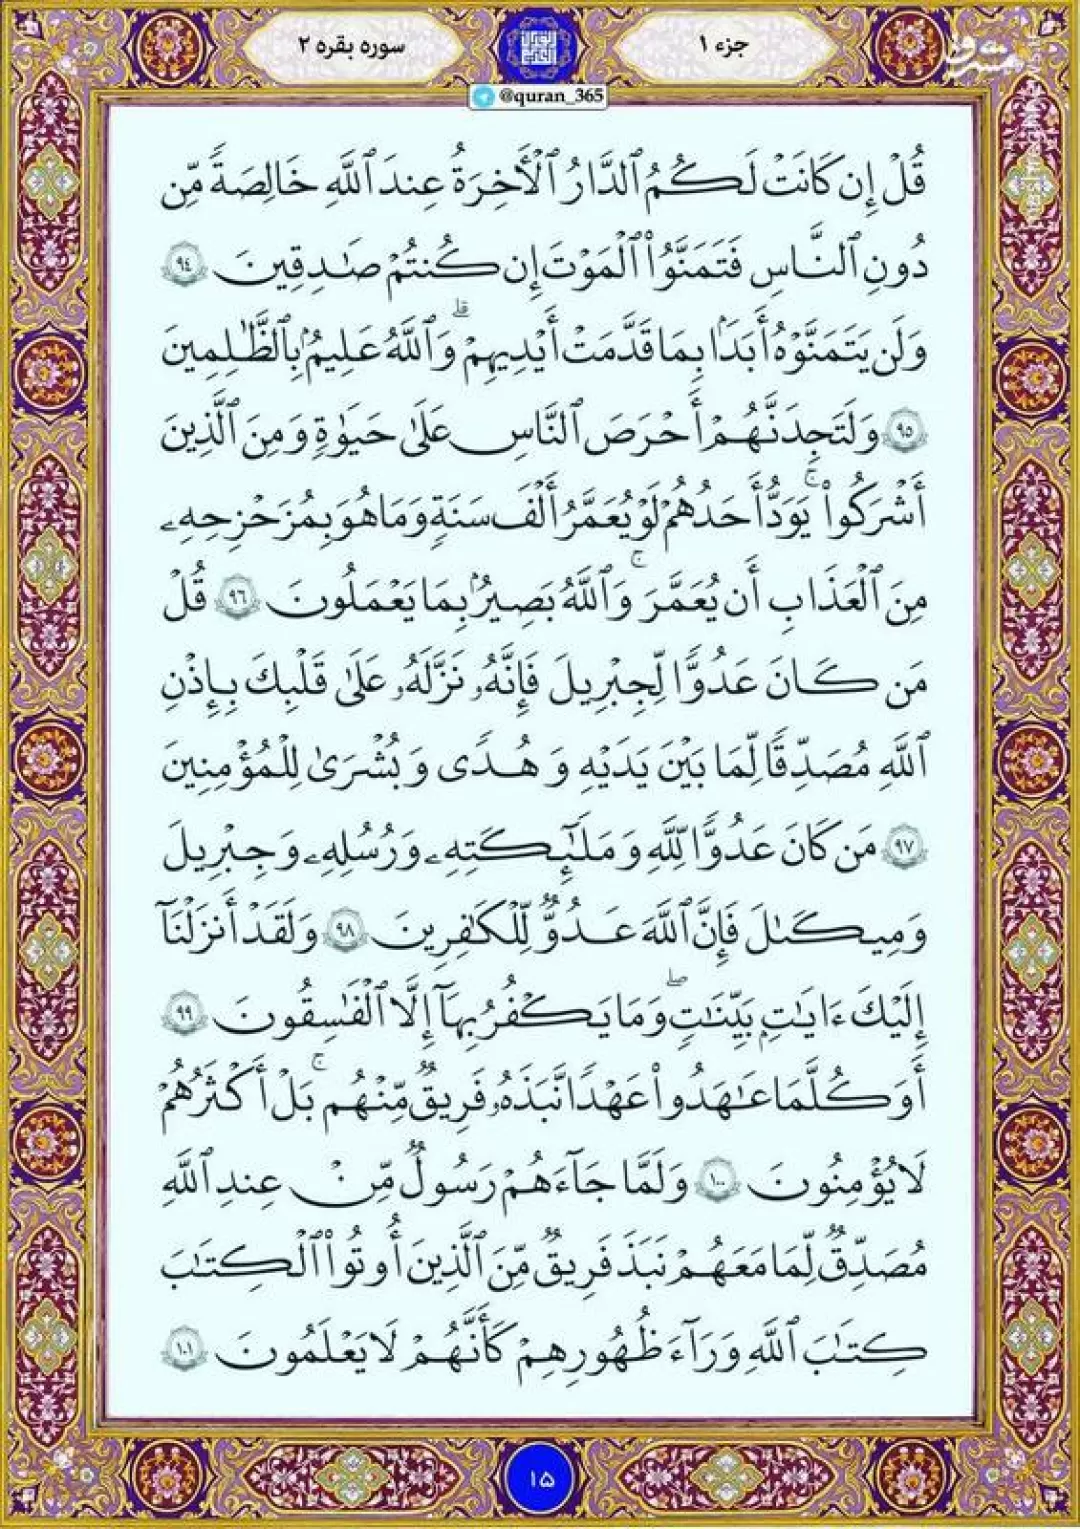 جزء ۱
سوره بقره ۲
@quran_365
قُلْ إِن كَانَتْ لَكُمُ ٱلدَّارُ ٱلْأَخِرَةُ عِندَ ٱللَّهِ خَالِصَةً مِّن
دُونِ ٱلنَّاسِ فَتَمَنَّوُا۟ ٱلْمَوْتَ إِن كُنتُمْ صَـٰدِقِينَ ٩٤
وَلَن يَتَمَنَّوْهُ أَبَدًۢا بِمَا قَدَّمَتْ أَيْدِيهِمْ ۗ وَٱللَّهُ عَلِيمُۢ بِٱلظَّـٰلِمِينَ
٩٥ وَلَتَجِدَنَّهُمْ أَحْرَصَ ٱلنَّاسِ عَلَىٰ حَيَوٰةٍ وَمِنَ ٱلَّذِينَ
أَشْرَكُوا۟ ۚ يَوَدُّ أَحَدُهُمْ لَوْ يُعَمَّرُ أَلْفَ سَنَةٍ وَمَا هُوَ بِمُزَحْزِحِهِۦ
مِنَ ٱلْعَذَابِ أَن يُعَمَّرَ ۗ وَٱللَّهُ بَصِيرُۢ بِمَا يَعْمَلُونَ ٩٦ قُلْ
مَن كَانَ عَدُوًّا لِّجِبْرِيلَ فَإِنَّهُۥ نَزَّلَهُۥ عَلَىٰ قَلْبِكَ بِإِذْنِ
ٱللَّهِ مُصَدِّقًا لِّمَا بَيْنَ يَدَيْهِ وَهُدًى وَبُشْرَىٰ لِلْمُؤْمِنِينَ
٩٧ مَن كَانَ عَدُوًّا لِّلَّهِ وَمَلَـٰٓئِكَتِهِۦ وَرُسُلِهِۦ وَجِبْرِيلَ
وَمِيكَىٰلَ فَإِنَّ ٱللَّهَ عَدُوٌّ لِّلْكَـٰفِرِينَ ٩٨ وَلَقَدْ أَنزَلْنَآ
إِلَيْكَ ءَايَـٰتِۭ بَيِّنَـٰتٍ ۖ وَمَا يَكْفُرُ بِهَآ إِلَّا ٱلْفَـٰسِقُونَ ٩٩
أَوَكُلَّمَا عَـٰهَدُوا۟ عَهْدًا نَّبَذَهُۥ فَرِيقٌ مِّنْهُم ۚ بَلْ أَكْثَرُهُمْ
لَا يُؤْمِنُونَ ١٠٠ وَلَمَّا جَآءَهُمْ رَسُولٌ مِّنْ عِندِ ٱللَّهِ
مُصَدِّقٌ لِّمَا مَعَهُمْ نَبَذَ فَرِيقٌ مِّنَ ٱلَّذِينَ أُوتُوا۟ ٱلْكِتَـٰبَ
كِتَـٰبَ ٱللَّهِ وَرَآءَ ظُهُورِهِمْ كَأَنَّهُمْ لَا يَعْلَمُونَ ١٠١
۱۵